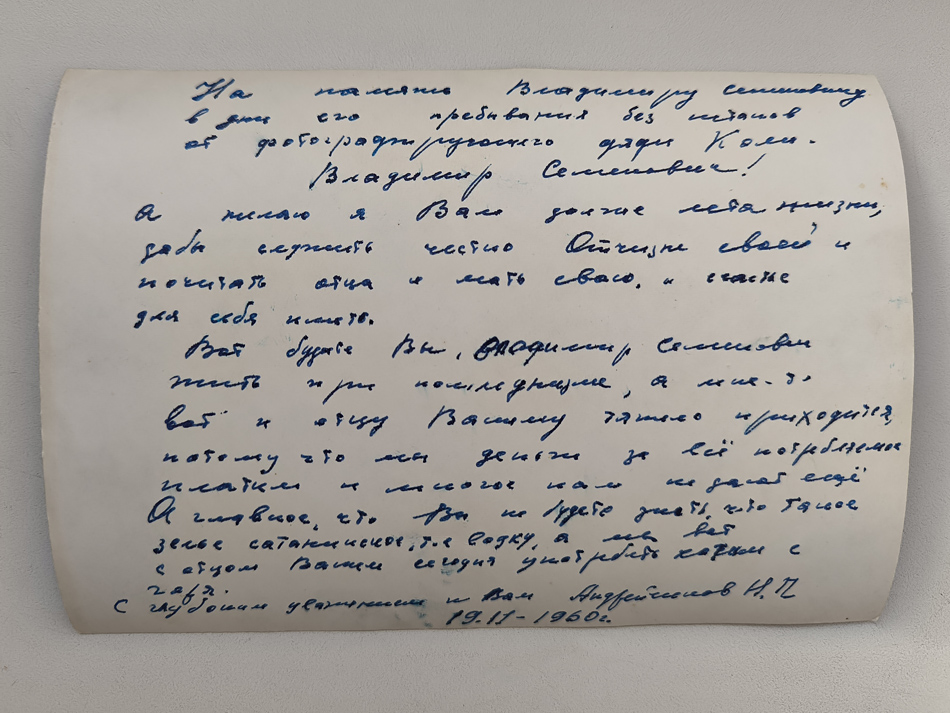 На память Владимиру Семеновичу
в дни его пребывания без штанов
от фотографирующего дяди Коли.
Владимир Семенович!
А желаю я Вам долгие лета жизни,
дабы служить честно Отчизне своей и
почитать отца и мать свою, и счастье
для себя иметь.
Вот будете Вы, Владимир Семенович
жить при коммунизме, а мне-то
вот и отцу Вашему тяжело приходится,
потому что мы деньги за всё потребляемое
платим и многое нам не дают ещё
А главное, что Вы не будете знать, что такое
зелье сатанинское, т.е водку, а мы вот
с отцом Вашим сегодня употребить хотим с
горя.
С глубоким уважением к Вам Андрейчиков Н.П
19.II-1960г.